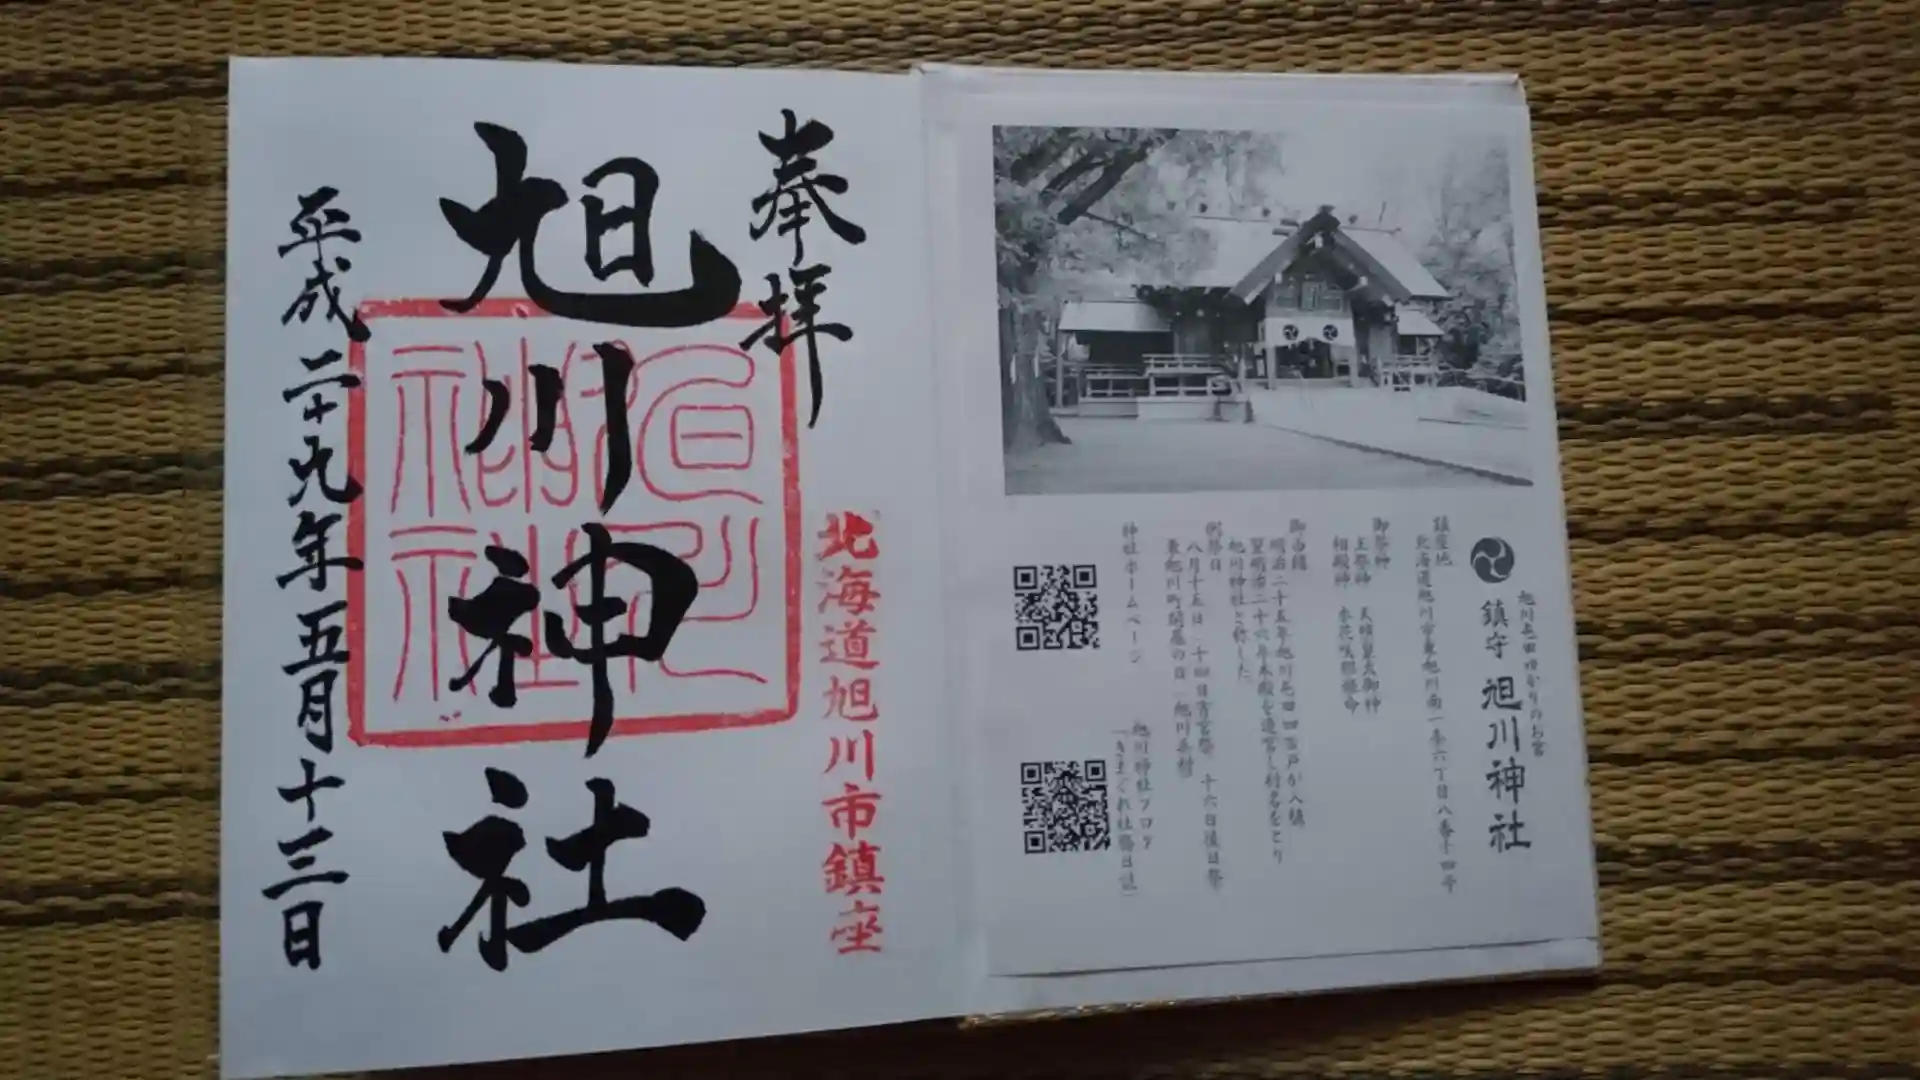 旭川屯田ゆかりのお宮
鎮守 旭川神社
鎮座地
北海道旭川市東旭川南一条六丁目八番十四号
御祭神
主祭神 天照皇大御神
相殿神 木花咲耶姫命
御由緒
明治二十五年旭川屯田四百戸が入植、
翌明治二十六年本殿を造営し村名をとり
旭川神社と称した。
例祭日
八月十五日、十四日宵宮祭、十六日後日祭
東旭川町開基の日、旭川兵村
神社ホームページ
旭川神社ブログ
「きまぐれ社務日誌」
奉拝
北海道旭川市鎮座
旭川神社
旭川神社
平成二十九年五月十三日